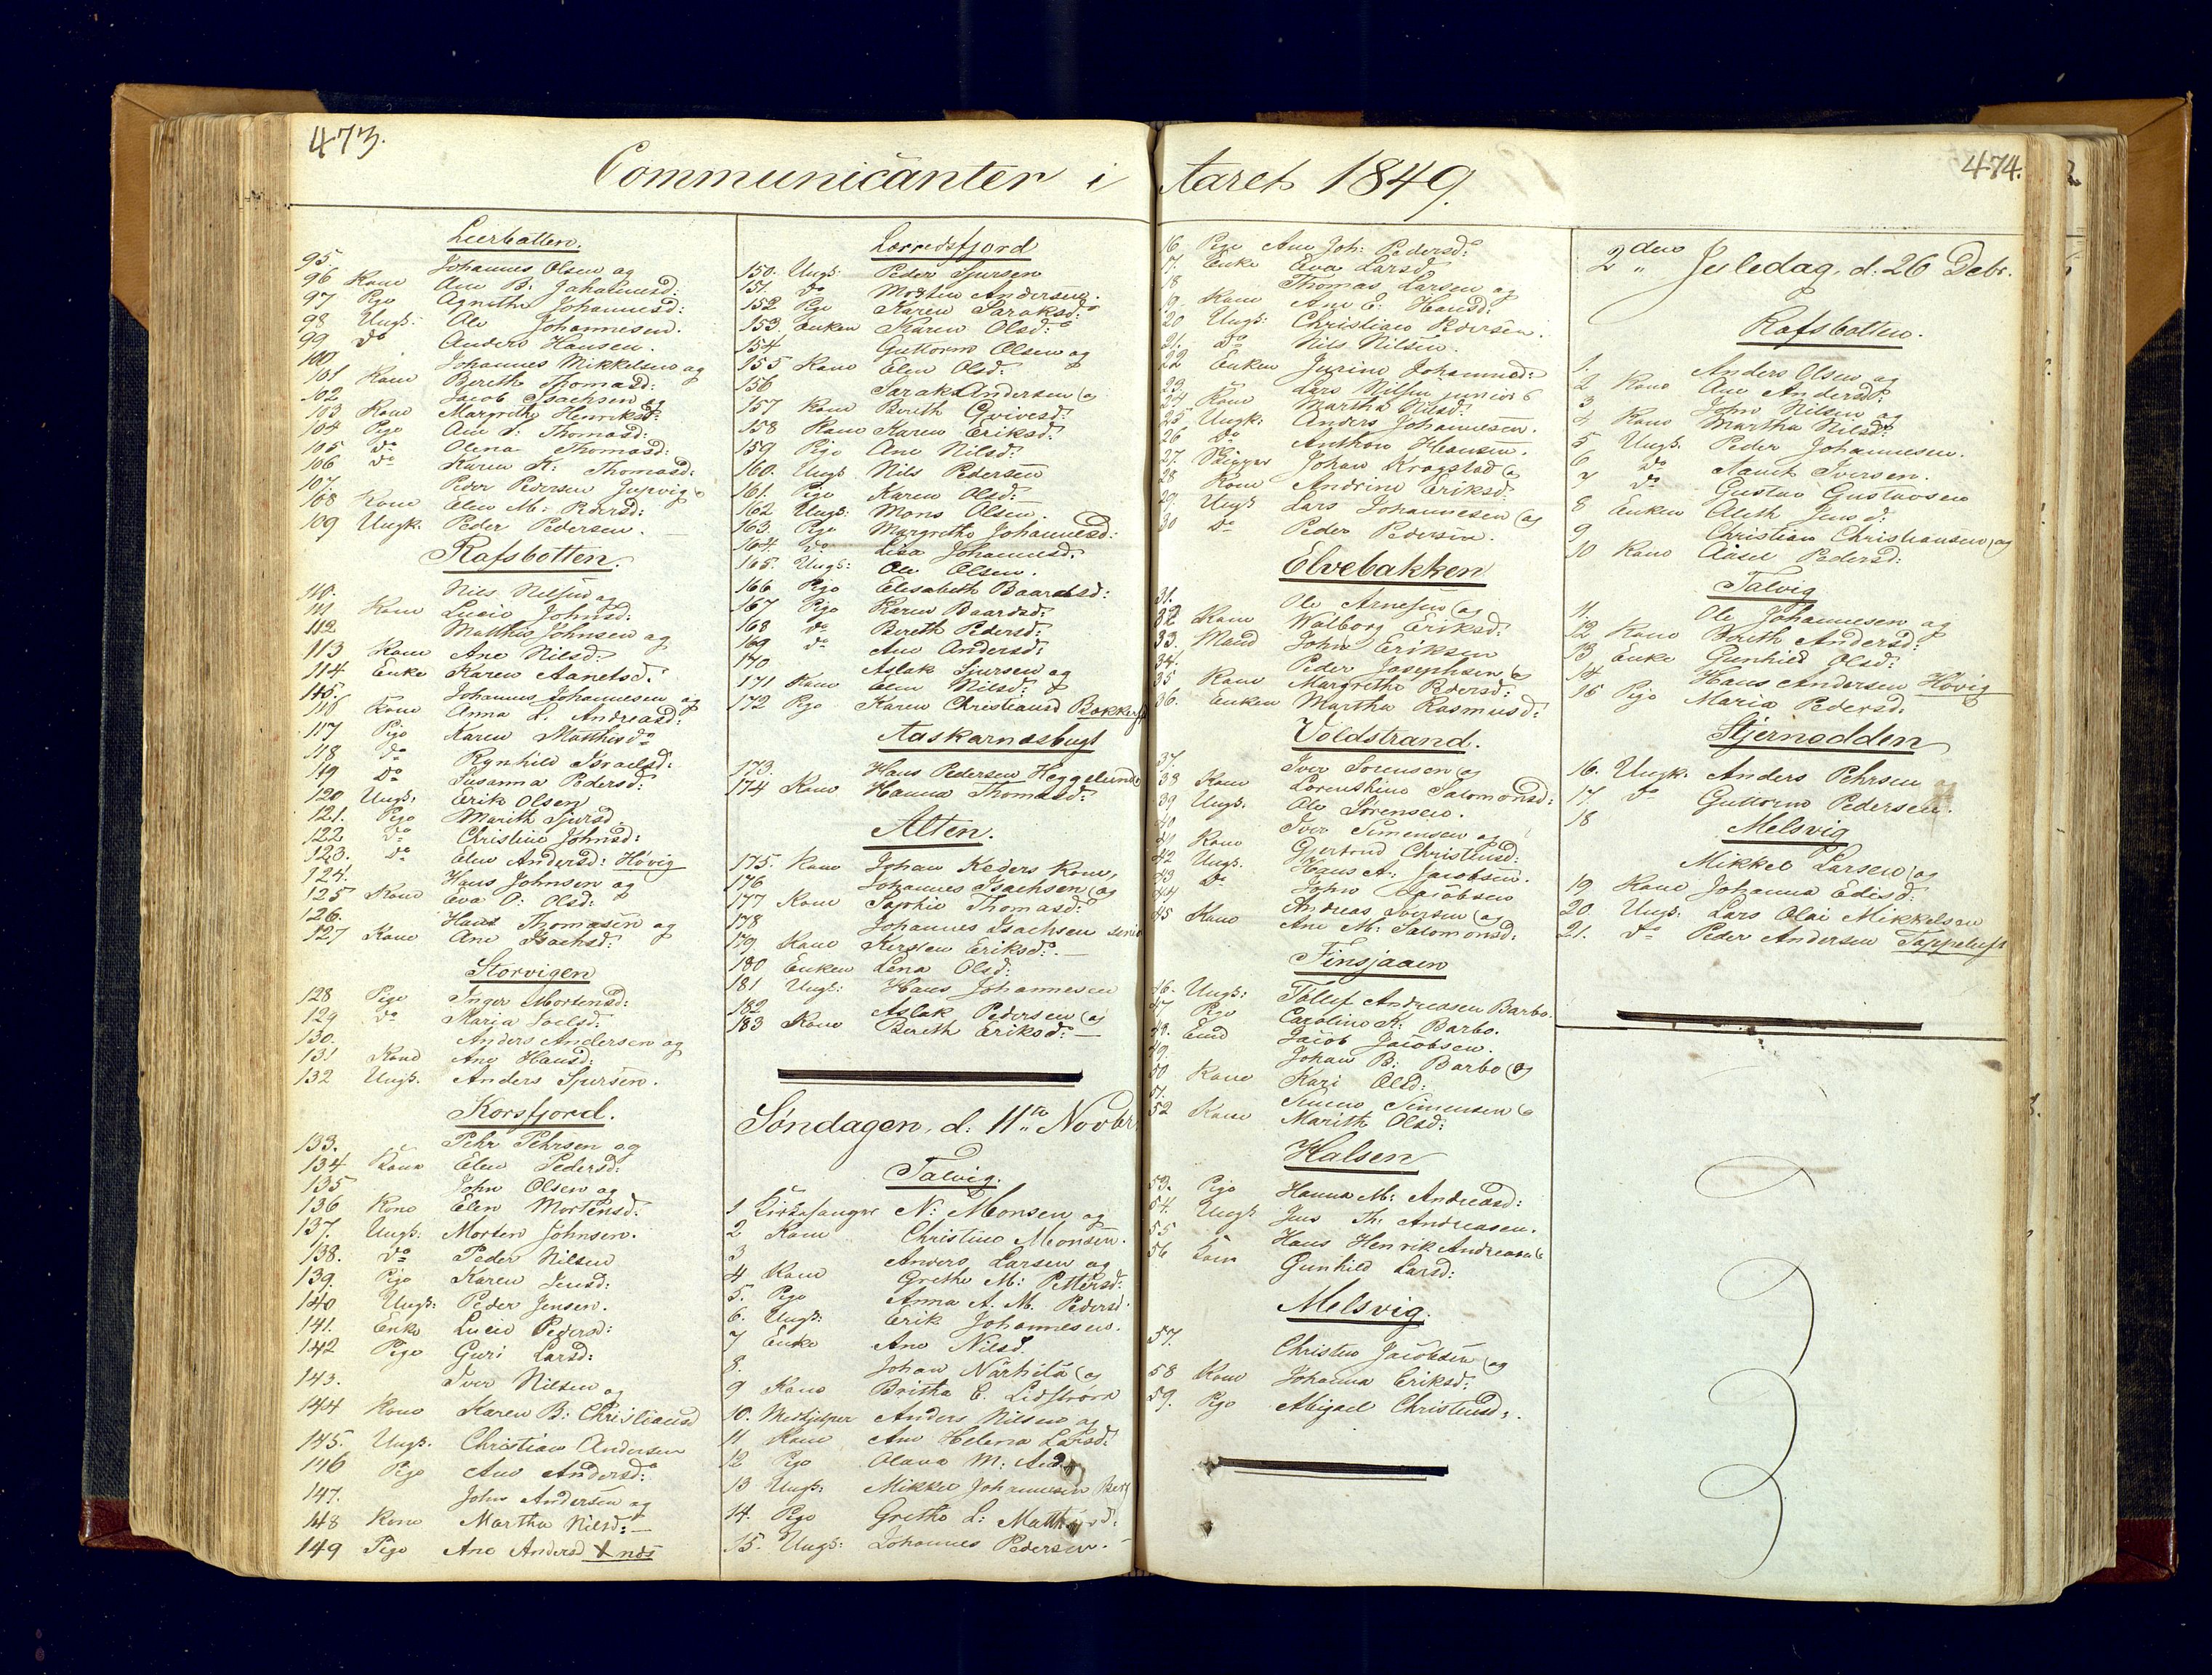 473.
Communicanter i Aaret 1849.
474.
Leerbatten.
95. Johannes Olsen og
96 Kone Ane B: Johannesd:
97 Pige Agnethe Johannesd:
98 Ungk: Ole Johannesen.
99 do Anders Hansen.
100 Johannes Mikkelsen og
101 Kone Bereth Thomasd:
102 Jacob Isachsen og
103 Kone Margrethe Henriksd:
104 Pige Ane S: Thomasd:
105 do Olena Thomasd:
106 do Karen K: Thomasd:
107. Peder Pedersen
108 Kone Elen M: Pedersd:
109 Ungk. Peder Pedersen.
Rafsbotten.
110. Nils Nilsen og
111. Kone Lucie Johnsd:
112 Matthis Johnsen og
113 Kone Ane Nilsd:
114 Enke Karen Aanetsd:
115. Johannes Johannesen og
116 Kone Anna L. Andreasd:
117 Pige Karen Matthisdo
118 do Rynhild Israelsd:
119 do Susanna Pedersd:
120 Ungk. Erik Olsen
121. Pige Marith Sjursd.
122 do Christine Johnsd:
123. do Elen Andersd: Høvig
124. Hans Johnsen og
125 Kone Eva O: Olsd:
126. Hans Thomasen og
127 Kone Ane Isachsd:
Storvigen
128 Pige Inger Mortensd:
129 do Maria Joelsd:
130. Anders Andersen og
131 Kone Ane Hansd:
132 Ungk. Anders Sjursen.
Korsfjord.
133. Pehr Pehrsen og
134 Kone Elen Pedersd:
135 John Olsen og
136 Kone Elen Mortensd:
137. Ungk: Morten Johnsen.
138. do Peder Nilsen
139. Pige Karen Jensd:
140 Ungk: Peder Jensen.
141. Enke Lucie Pedersd:
142 Pige Guri Larsd:
143. Iver Nilsen og
144 Kone Karen B: Christiansd
145. Ungk. Christian Andersen
146 Pige Ane Andersd:
147. John Andersen og
148 Kone Martha Nilsd:
149 Pige Ane Andersd
Lerredsfjord
150. Ungk: Peder Sjursen
151. do Morten Andersen.
152 Pge Karen Saraksd:
153. Enken Karen Olsd:
154 Guttorm Olsen og
155 Kone Elen Olsd:
156 Sarak Andersen og
157 Kone Bereth Qvivesd:
158 Kone Karen Eriksd:
159 Pige Ane Nilsd:
160. Ungk Nils Pedersen
161. Pige Karen Olsd:
162 Ungk: Mons Olsen.
163. Pge Margrethe Johannesd:
164. do Lisa Johannesd:
165. Ungk: Ole Olsen.
166 Pige Elisabeth Baardsd:
167 Pige Karen Baardsd:
168 do Bereth Pedersd:
169 do Ane Andersd:
170 Aslak Sjursen og
171 Kone Elen Nilsd:
172 Pge Karen Christiansd
Aaskarnæsbugt
173. Hans Pedersen Heggelund
174 Kone Hanna Thomasd:
Alten.
175. Kone Johan Keders Kone,
176 Johannes Isachsen og
177 Kone Sophie Thomasd:
178 Johannes Isachsen
179. Kone Kirsten Eriksd:
180 Enken Lena Olsd:
181 Ungk: Hans Johannesen
182 Aslak Pedersen og
183 Kone Bereth Eriksd:
Søndagen, d: 11te Novbr.
Talvig.
1 Kirkesanger N: Monsen og
2 Kone Christine Monsen.
3 Anders Larsen og
4 Kone Grethe M: Pettersd:
5. Pige Anna A. M. Pedersd.
6. Ungk: Erik Johannesen.
7 Enke Ane Nilsd.
8. Johan Närhilä og
9 Kone Britha C. Lidstrøm
10. Medhjelper Anders Nilsen og
11 Kone Ane Helena Larsd:
12 Pge Olava M:
13 Ungk: Mikkel Johannesen Berg
14. Pige Grethe L:
15. Ungk: Johannes Pedersen.
16 Pige Ane Joh: Pedersd:
17. Enke Eva Larsd
18 Thomas Larsen og
19. Kone Ane E: Hansd:
20 Ungk: Christian Pedersen.
21. do Nils Nilsen.
22 Enken Jurine Johannesd:
23. Lars Nilsen junior &
24 Kone Martha Nilsd:
25 Ungk: Anders Johannesen.
26 do Anthon Hansen.
27. Skipper Johan Kragstad og
28 Kone Andrine Eriksd:
29 Ungk Lars Johannesen og
30 do Peder Pedersen.
Elvebakken
31. Ole Arnesen og
32 Kone Walborg Eriksd:
33. Mand John Eriksen
34. Peder Josephsen og
35 Kone Margrethe Pedersd:
36. Enken Martha Rasmusd:
Voldstrand.
37. Iver Sørensen og
38 Kone Lorenthine Salomonsd:
39 Ungk. Ole Sørensen.
40 Iver Simensen og
41 Kone Gjertrud Christensd:
42 Ungk. Hans A: Jacobsen.
43 do John Jacobsen
44 Andreas Iversen og
45 Kone Ane M: Salomonsd:
Finsjaaen
46. Ungk: Tollef Andreasen Barbo.
47 Pge Caroline K: Barbo.
48. Emd Jacob Jacobsen.
49. Johan B: Barbo og
50 Kone Kari Olsd:
51. Simensen og
52 Kone Marith Olsd:
Halsen
53. Pige Hanna M: Andreasd:
54. Ungk Jens Th: Andreasen.
55 Hans Henrik Andreasen og
56 Kone Gunhild Larsd:
Melsvig.
57. Christen Jacobsen og
58 Kone Johanna Eriksd:
59. Pge Abigael Christensd:
2den Juledag, d: 26 Debr.
Rafsbotten.
1. Anders Olsen og
2 Kone Ane Andersd:
3 John Nilsen og
4 Kone Martha Nilsd:
5 Ungk. Peder Johannesen.
6. do Aanet Iversen.
7 do Gustav Gustavsen
8 Enken Aleth Jensd:
9 Christian Christiansen og
10 Kone Aasel Pedersd:
Talvig
11. Ole Johannesen og
12 Kone Berith Andersd:
13 Enke Gunhild Olsd:
14 Hans Andersen Høvig
15 Pige Maria Pedersd:
Stjernodden
16. Ungk. Anders Pehrsen
17. do Guttorm Pedersen.
18
Melsvig
Mikkel Larsen og
19 Kone Johanna Edisd:
20. Ungk: Lars Olai Mikkelsen
21. do Peder Andersen Tappeluft